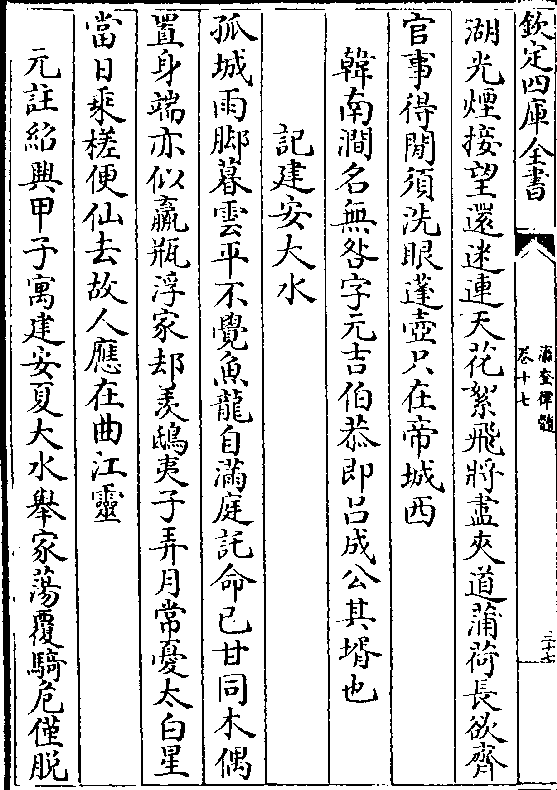 欽定四庫全書
瀛奎律髓
卷十七
三十七
湖光煙接望還迷連天花絮飛將盡夾道蒲荷長欲齊
官事得閒須洗眼蓬壺只在帝城西
韓南澗名無咎字元吉伯恭即呂成公其壻也
記建安大水
孤城雨脚暮雲平不覺魚龍自滿庭託命已甘同木偶
置身端亦似羸瓶浮家却羡鴟夷子弄月常憂太白星
當日乘槎便仙去故人應在曲江靈
元註紹興甲子寓建安夏大水舉家蕩覆騎危僅脫